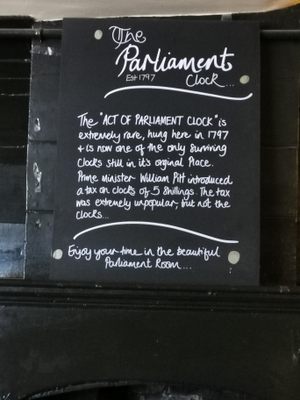 The
Parliament
Est 1797
Clock...
The "ACT OF PARLIAMENT CLOCK" is
extremely rare, hung here in 1797
+ is now one of the only surviving
Clocks still in it's orginal Place.
Prime Minister William Pitt introduced
a tax on clocks of 5 Shillings. The tax
was extremely unpopular, but not the
clocks...
Enjoy your time in the beautiful
Parliament Room....